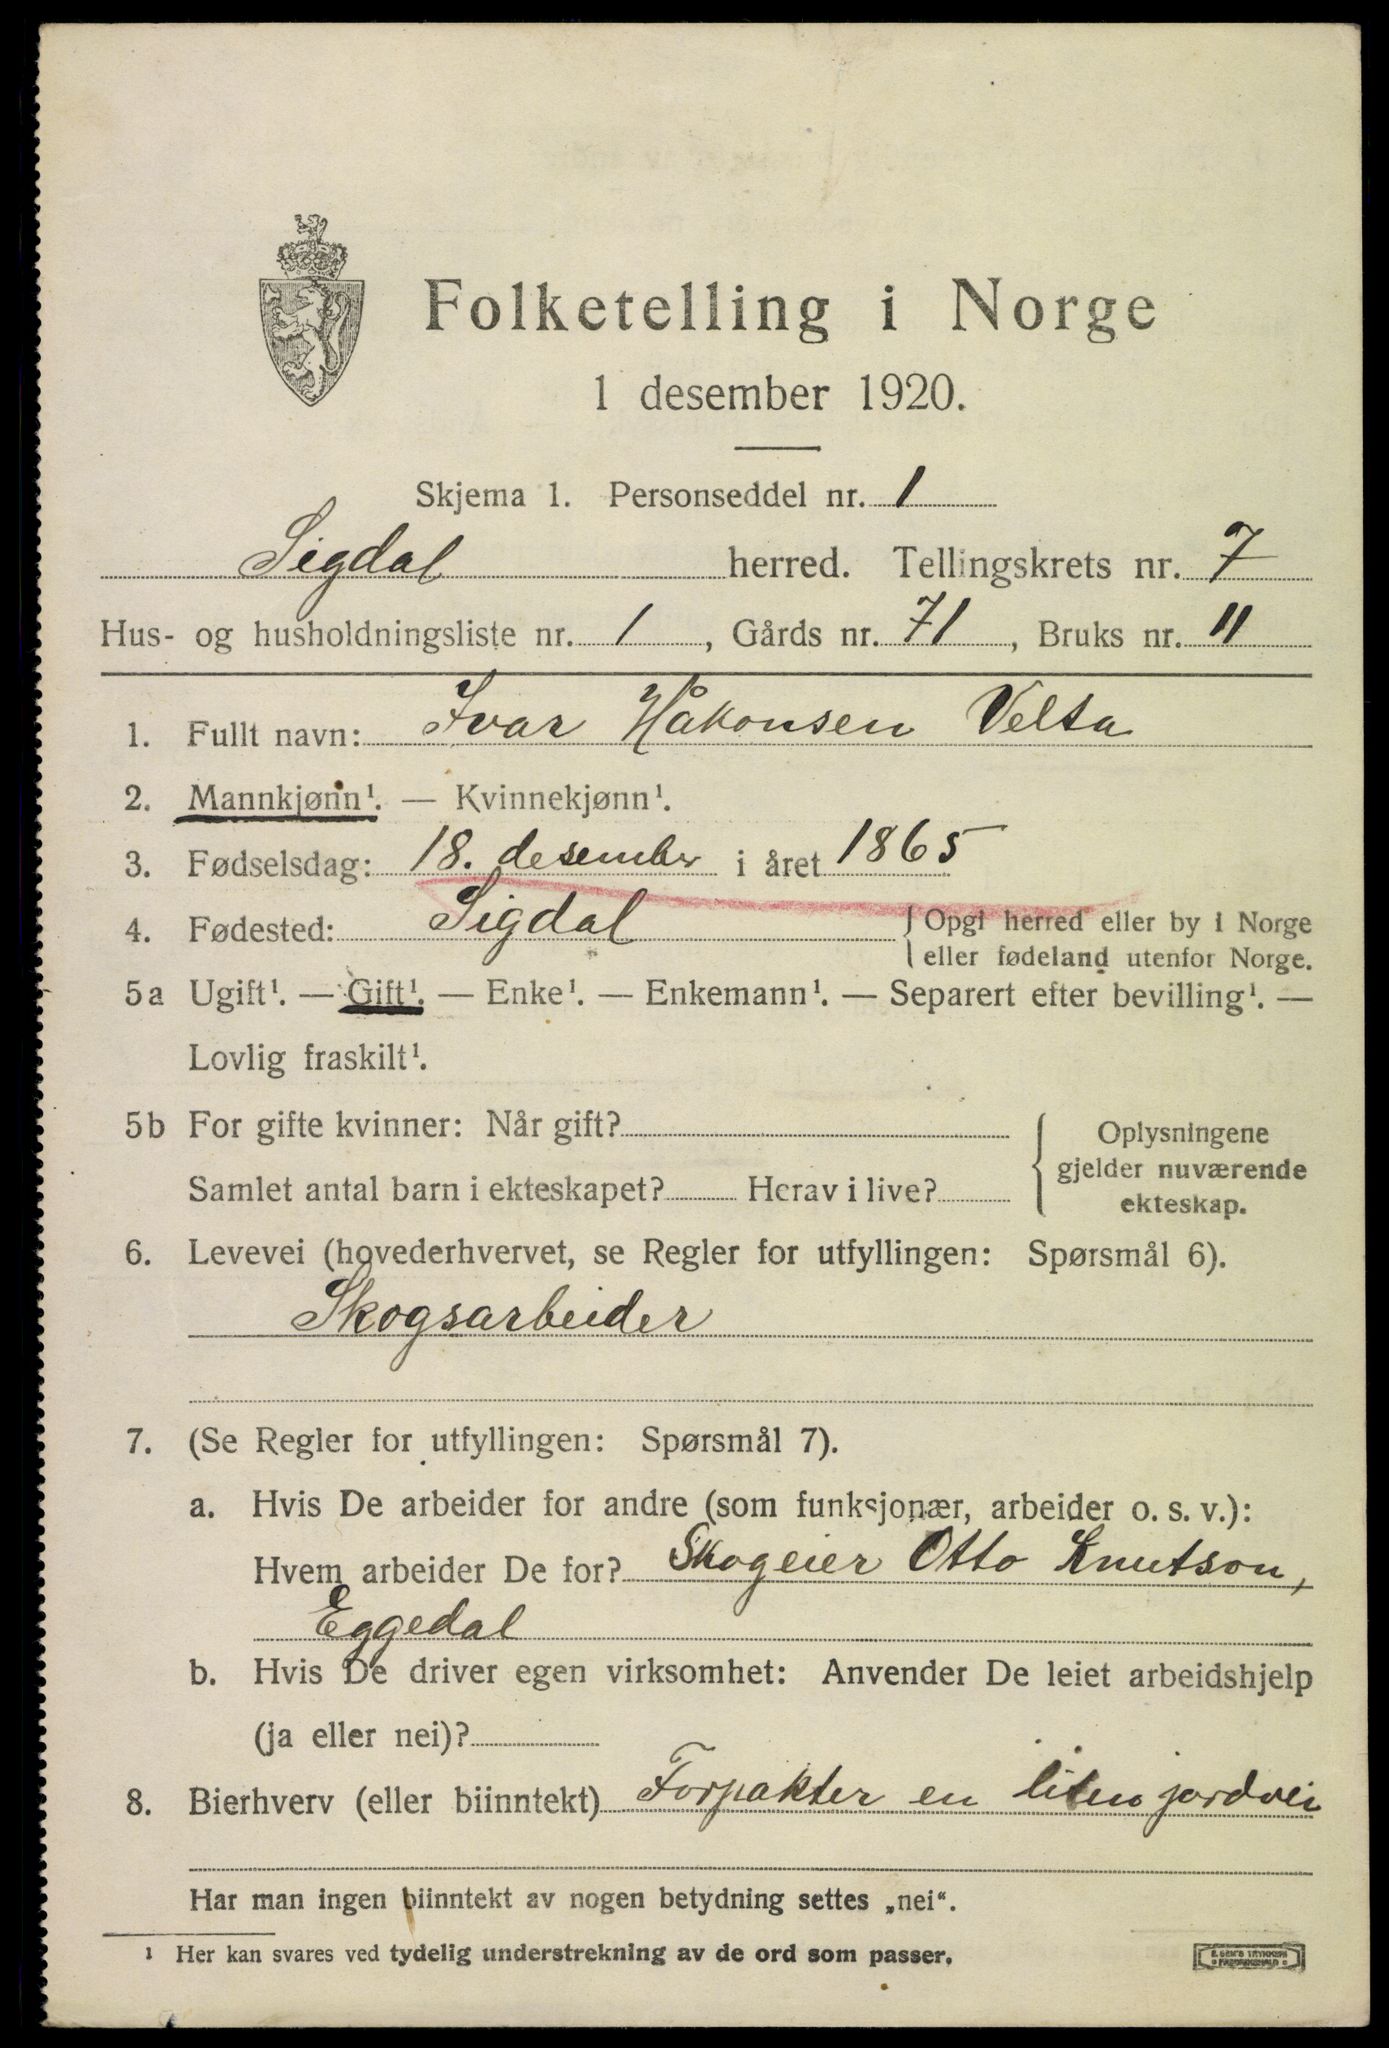 Folketelling i Norge
1 desember 1920.
Skjema 1. Personseddel nr. 1
Sigdal herred. Tellingskrets nr. 7
Hus- og husholdningsliste nr. 1, Gårds nr. 71, Bruks nr. 11
1. Fullt navn: Ivar Håkonsen Velta
2. Mannkjønn¹. — Kvinnekjønn¹.
3. Fødselsdag: 18. desember i året 1865
4. Fødested: Sigdal { Opgi herred eller by i Norge
eller fødeland utenfor Norge.
5a Ugift¹. — Gift¹. — Enke¹. — Enkemann¹. — Separert efter bevilling¹. —
Lovlig fraskilt¹.
5b For gifte kvinner: Når gift?
Samlet antal barn i ekteskapet? Herav i live?
Oplysningene
gjelder nuværende
ekteskap.
6. Levevei (hovederhvervet, se Regler for utfyllingen: Spørsmål 6).
Skogsarbeider
7. (Se Regler for utfyllingen: Spørsmål 7).
a. Hvis De arbeider for andre (som funksjonær, arbeider o. s. v.):
Hvem arbeider De for? Skogeier Otto Knutson,
Eggedal
b. Hvis De driver egen virksomhet: Anvender De leiet arbeidshjelp
(ja eller nei)?
8. Bierhverv (eller biinntekt) Forpakter en liten jordvei
Har man ingen biinntekt av nogen betydning settes „nei“.
¹ Her kan svares ved tydelig understrekning av de ord som passer.